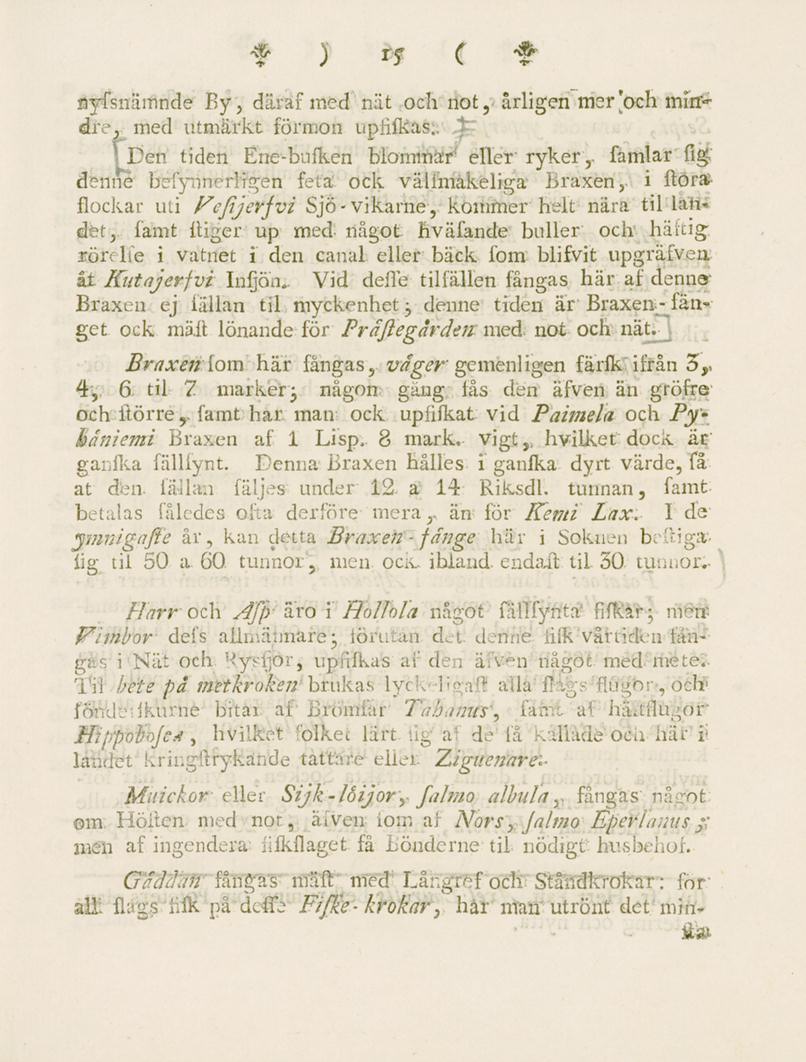 ) 15 (
nyſsnämnde By, däraf med nät och not, årligen mer och min-
dre, med utmärkt förmon upfiſkas.
Den tiden Ene-buſken blommar eller ryker, ſamlar ſig
denne beſynnerligen feta ock välſmakeliga Braxen, i ſtora
flockar uti Veſijerfvi Sjö-vikarne, kommer helt nära til lan-
det, ſamt ſtiger up med något hväſande buller och häftig
rörelſe i vatnet i den canal eller bäck ſom blifvit upgräfven
åt Kutajerfvi Inſjön. Vid deſſe tilfällen fångas här af denne
Braxen ej ſällan til myckenhet; denne tiden är Braxen-fån-
get ock mäſt lönande för Präſtegården med not och nät.
Braxen ſom här fångas, väger gemenligen färſk ifrån 3,
4, 6 til 7 marker; någon gång fås den äfven än gröfre
och ſtörre, ſamt har man ock upfiſkat vid Paimela och Py-
häniemi Braxen af 1 Lisp. 8 mark. vigt, hvilket dock är
ganſka ſällſynt. Denna Braxen hålles i ganſka dyrt värde, ſå
at den ſällan ſäljes under 12 a 14 Riksdl. tunnan, ſamt
betalas ſåledes ofta derföre mera, än för Kemi Lax. I de
ymnigaſte år, kan detta Braxen-fånge här i Soknen beſtiga
ſig til 50 a 60 tunnor, men ock ibland endaſt til 30 tunnor.
Harr och Aſp äro i Hollola något ſällſynta fiſkar; men
Vimbor deſs allmännare; förutan det denne fiſk vårtiden fån-
gas i Nät och Rysſjor, upfiſkas af den äfven något med mete.
Til bete på metkroken brukas lyckeligaſt alla ſlags flugor, och
ſönderſkurne bitar af Brömſar Tabanus, ſamt af häſtflugor
Hippoboſca, hvilket folket lärt ſig af de ſå kallade och här i
landet kringſtrykande tattare eller Ziguenare.
Muickor eller Sijk-löijor, ſalmo albula, fångas något
om Höſten med not, äfven ſom af Nors, ſalmo Eperlanus;
men af ingendera fiſkſlaget få Bönderne til nödigt husbehof.
Gäddan fångas mäſt med Långref och Ståndkrokar: för
all ſlags fiſk på deſſe Fiſke-krokar, har man utrönt det min-
ſta